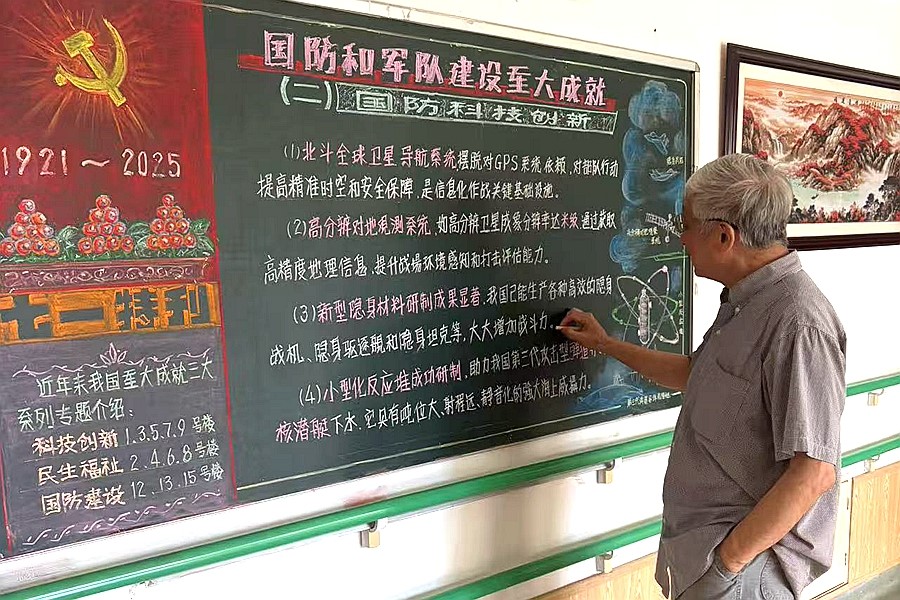 1921～2025
十二月特刊
近年来我国至大成就三大
系列专题介绍：
科技创新 1.3.5.7.9 号楼
民生福祉 2.4.6.8 号楼
国防建设 12.13.15 号楼
国防和军队建设至大成就
(二) 国防科技创新
(1) 北斗全球卫星导航系统，摆脱对GPS系统依赖，对部队行动
提高精准时空和安全保障，是信息化作战关键基础设施。
(2) 高分辨对地观测系统，如高分辨卫星成象分辨率达米级，通过获取
高精度地理信息，提升战场环境感知和打击评估能力。
(3) 新型隐身材料研制成果显著，我国已能生产各种高效的隐身
战机、隐身驱逐舰和隐身坦克等，大大增加战斗力。
(4) 小型化反应堆成功研制，助力我国第三代攻击型
核潜艇下水，它具有吨位大、射程远、静音化的强大海上威慑力。